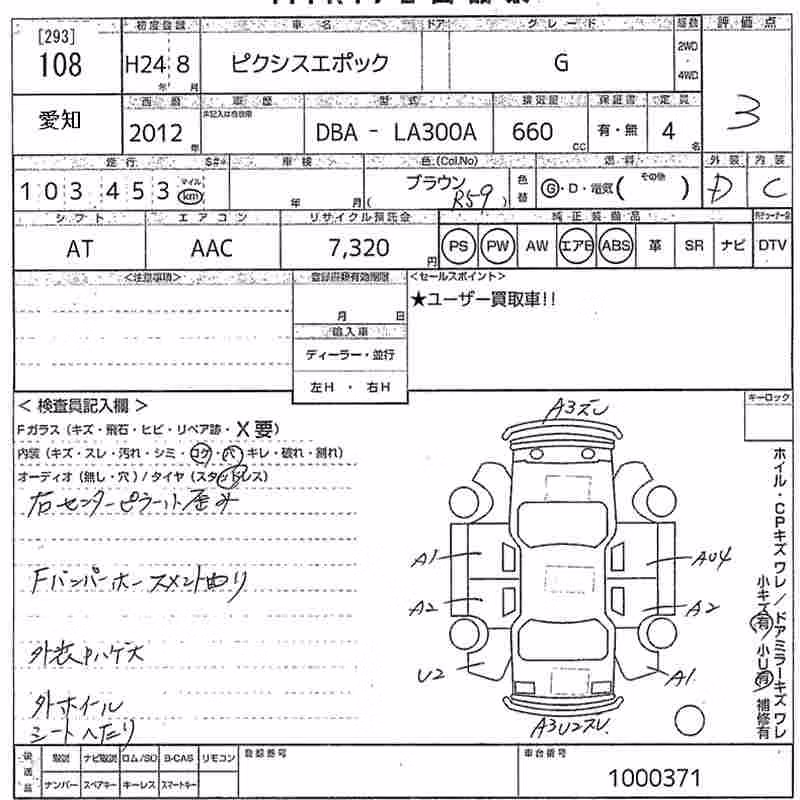 [293]
108
初度登録 車名 ドア グレード 駆動 評価点
H24 8 年 月 ピクシスエポック G 2WD・4WD 3
愛知
西暦 車歴 型式 排気量 保証書 定員
2012 年 未記入は自家用 DBA - LA300A 660 cc 有・無 4 名
走行 S#* 車検 色(Col.No) 燃料 外装 内装
103453 マイル km 年 月 ブラウン R59 色替 G・D・電気( その他 ) D C
シフト エアコン リサイクル預託金 純正装備品
AT AAC 7,320 円 PS PW AW エアB ABS 革 SR ナビ DTV
<注意事項> 登録書類有効期限 <セールスポイント>
月 日 ★ユーザー買取車!!
輸入車
ディーラー・並行
左H ・ 右H
< 検査員記入欄 >
キーロック
Fガラス(キズ・飛石・ヒビ・リペア跡・X要)
内装(キズ・スレ・汚れ・シミ・コゲ・穴・キレ・破れ・割れ)
オーディオ(無し・穴)/タイヤ(スタッドレス)
右センターピラー小歪み
Fバンパーホースメント曲り
外装中ハゲ大
外ホイール
シートへたり
A3ズレ
A1 AU4
A2 A2
U2 A1
A3U2ズレ
ホイル・CPキズ ワレ / ドアミラーキズ ワレ
小キズ有 小U有 補修有
後送品 取説 ナビ取説 ロム/SD B-CAS リモコン 登録番号 車台番号
ナンバー スペアキー キーレス スマートキー 1000371